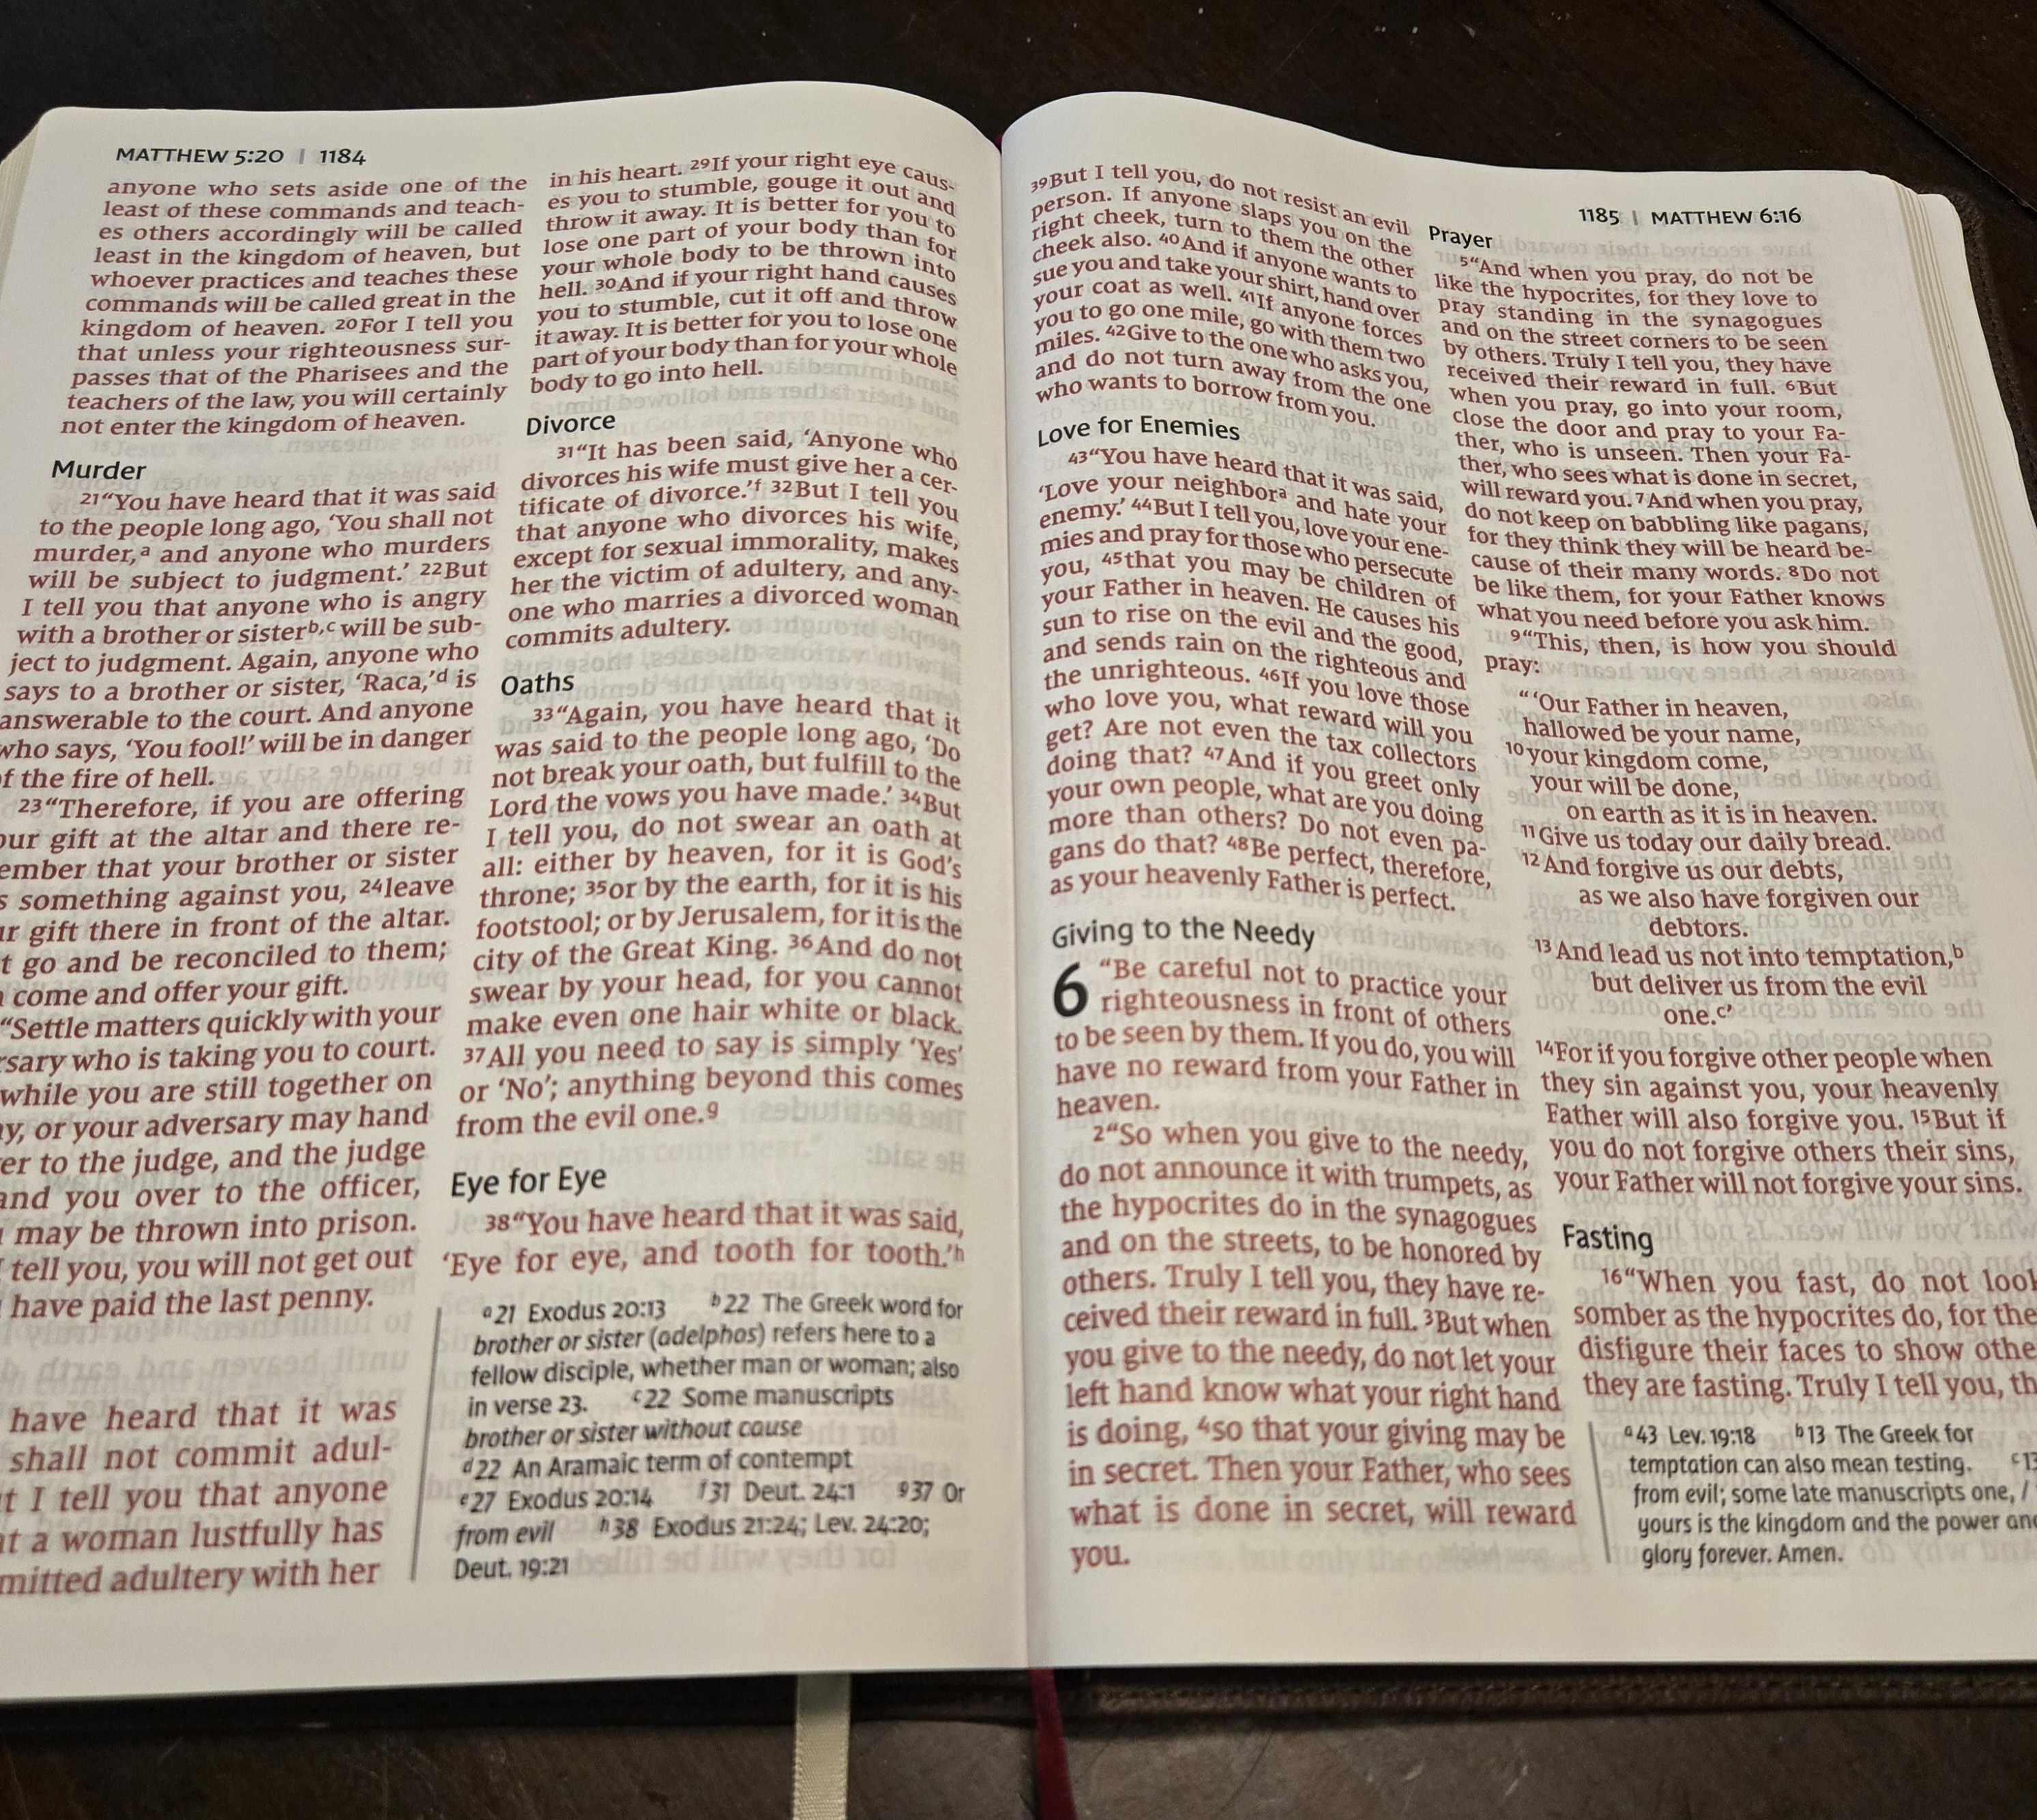 MATTHEW 5:20 | 1184
anyone who sets aside one of the
least of these commands and teach-
es others accordingly will be called
least in the kingdom of heaven, but
whoever practices and teaches these
commands will be called great in the
kingdom of heaven. 20For I tell you
that unless your righteousness sur-
passes that of the Pharisees and the
teachers of the law, you will certainly
not enter the kingdom of heaven.
Murder
21“You have heard that it was said
to the people long ago, ‘You shall not
murder,a and anyone who murders
will be subject to judgment.’ 22But
I tell you that anyone who is angry
with a brother or sisterb,c will be sub-
ject to judgment. Again, anyone who
says to a brother or sister, ‘Raca,’d is
answerable to the court. And anyone
who says, ‘You fool!’ will be in danger
of the fire of hell.
23“Therefore, if you are offering
our gift at the altar and there re-
ember that your brother or sister
s something against you, 24leave
ur gift there in front of the altar.
t go and be reconciled to them;
come and offer your gift.
“Settle matters quickly with your
rsary who is taking you to court.
while you are still together on
y, or your adversary may hand
er to the judge, and the judge
and you over to the officer,
may be thrown into prison.
tell you, you will not get out
have paid the last penny.
have heard that it was
shall not commit adul-
t I tell you that anyone
at a woman lustfully has
mitted adultery with her
in his heart. 29If your right eye caus-
es you to stumble, gouge it out and
throw it away. It is better for you to
lose one part of your body than for
your whole body to be thrown into
hell. 30And if your right hand causes
you to stumble, cut it off and throw
it away. It is better for you to lose one
part of your body than for your whole
body to go into hell.
Divorce
31“It has been said, ‘Anyone who
divorces his wife must give her a cer-
tificate of divorce.’f 32But I tell you
that anyone who divorces his wife,
except for sexual immorality, makes
her the victim of adultery, and any-
one who marries a divorced woman
commits adultery.
Oaths
33“Again, you have heard that it
was said to the people long ago, ‘Do
not break your oath, but fulfill to the
Lord the vows you have made.’ 34But
I tell you, do not swear an oath at
all: either by heaven, for it is God’s
throne; 35or by the earth, for it is his
footstool; or by Jerusalem, for it is the
city of the Great King. 36And do not
swear by your head, for you cannot
make even one hair white or black.
37All you need to say is simply ‘Yes’
or ‘No’; anything beyond this comes
from the evil one.g
Eye for Eye
38“You have heard that it was said,
‘Eye for eye, and tooth for tooth.’h
a21 Exodus 20:13 b22 The Greek word for
brother or sister (adelphos) refers here to a
fellow disciple, whether man or woman; also
in verse 23. c22 Some manuscripts
brother or sister without cause
d22 An Aramaic term of contempt
e27 Exodus 20:14 f31 Deut. 24:1 g37 Or
from evil h38 Exodus 21:24; Lev. 24:20;
Deut. 19:21
1185 | MATTHEW 6:16
39But I tell you, do not resist an evil
person. If anyone slaps you on the
right cheek, turn to them the other
cheek also. 40And if anyone wants to
sue you and take your shirt, hand over
your coat as well. 41If anyone forces
you to go one mile, go with them two
miles. 42Give to the one who asks you,
and do not turn away from the one
who wants to borrow from you.
Love for Enemies
43“You have heard that it was said,
‘Love your neighbora and hate your
enemy.’ 44But I tell you, love your ene-
mies and pray for those who persecute
you, 45that you may be children of
your Father in heaven. He causes his
sun to rise on the evil and the good,
and sends rain on the righteous and
the unrighteous. 46If you love those
who love you, what reward will you
get? Are not even the tax collectors
doing that? 47And if you greet only
your own people, what are you doing
more than others? Do not even pa-
gans do that? 48Be perfect, therefore,
as your heavenly Father is perfect.
Giving to the Needy
6 “Be careful not to practice your
righteousness in front of others
to be seen by them. If you do, you will
have no reward from your Father in
heaven.
2“So when you give to the needy,
do not announce it with trumpets, as
the hypocrites do in the synagogues
and on the streets, to be honored by
others. Truly I tell you, they have re-
ceived their reward in full. 3But when
you give to the needy, do not let your
left hand know what your right hand
is doing, 4so that your giving may be
in secret. Then your Father, who sees
what is done in secret, will reward
you.
Prayer
5“And when you pray, do not be
like the hypocrites, for they love to
pray standing in the synagogues
and on the street corners to be seen
by others. Truly I tell you, they have
received their reward in full. 6But
when you pray, go into your room,
close the door and pray to your Fa-
ther, who is unseen. Then your Fa-
ther, who sees what is done in secret,
will reward you. 7And when you pray,
do not keep on babbling like pagans,
for they think they will be heard be-
cause of their many words. 8Do not
be like them, for your Father knows
what you need before you ask him.
9“This, then, is how you should
pray:
“‘Our Father in heaven,
hallowed be your name,
10your kingdom come,
your will be done,
on earth as it is in heaven.
11Give us today our daily bread.
12And forgive us our debts,
as we also have forgiven our
debtors.
13And lead us not into temptation,b
but deliver us from the evil
one.c’
14For if you forgive other people when
they sin against you, your heavenly
Father will also forgive you. 15But if
you do not forgive others their sins,
your Father will not forgive your sins.
Fasting
16“When you fast, do not look
somber as the hypocrites do, for the
disfigure their faces to show othe
they are fasting. Truly I tell you, th
a43 Lev. 19:18 b13 The Greek for
temptation can also mean testing. c13
from evil; some late manuscripts one, /
yours is the kingdom and the power and
glory forever. Amen.